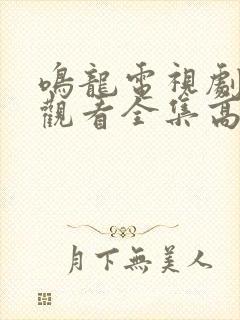 鳴龍電視劇
觀看全集高
月下無美人